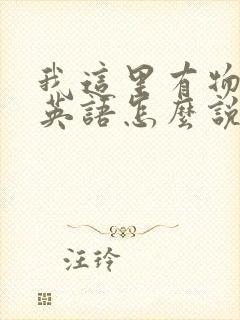 我這里有物
英語怎麼說
汪玲